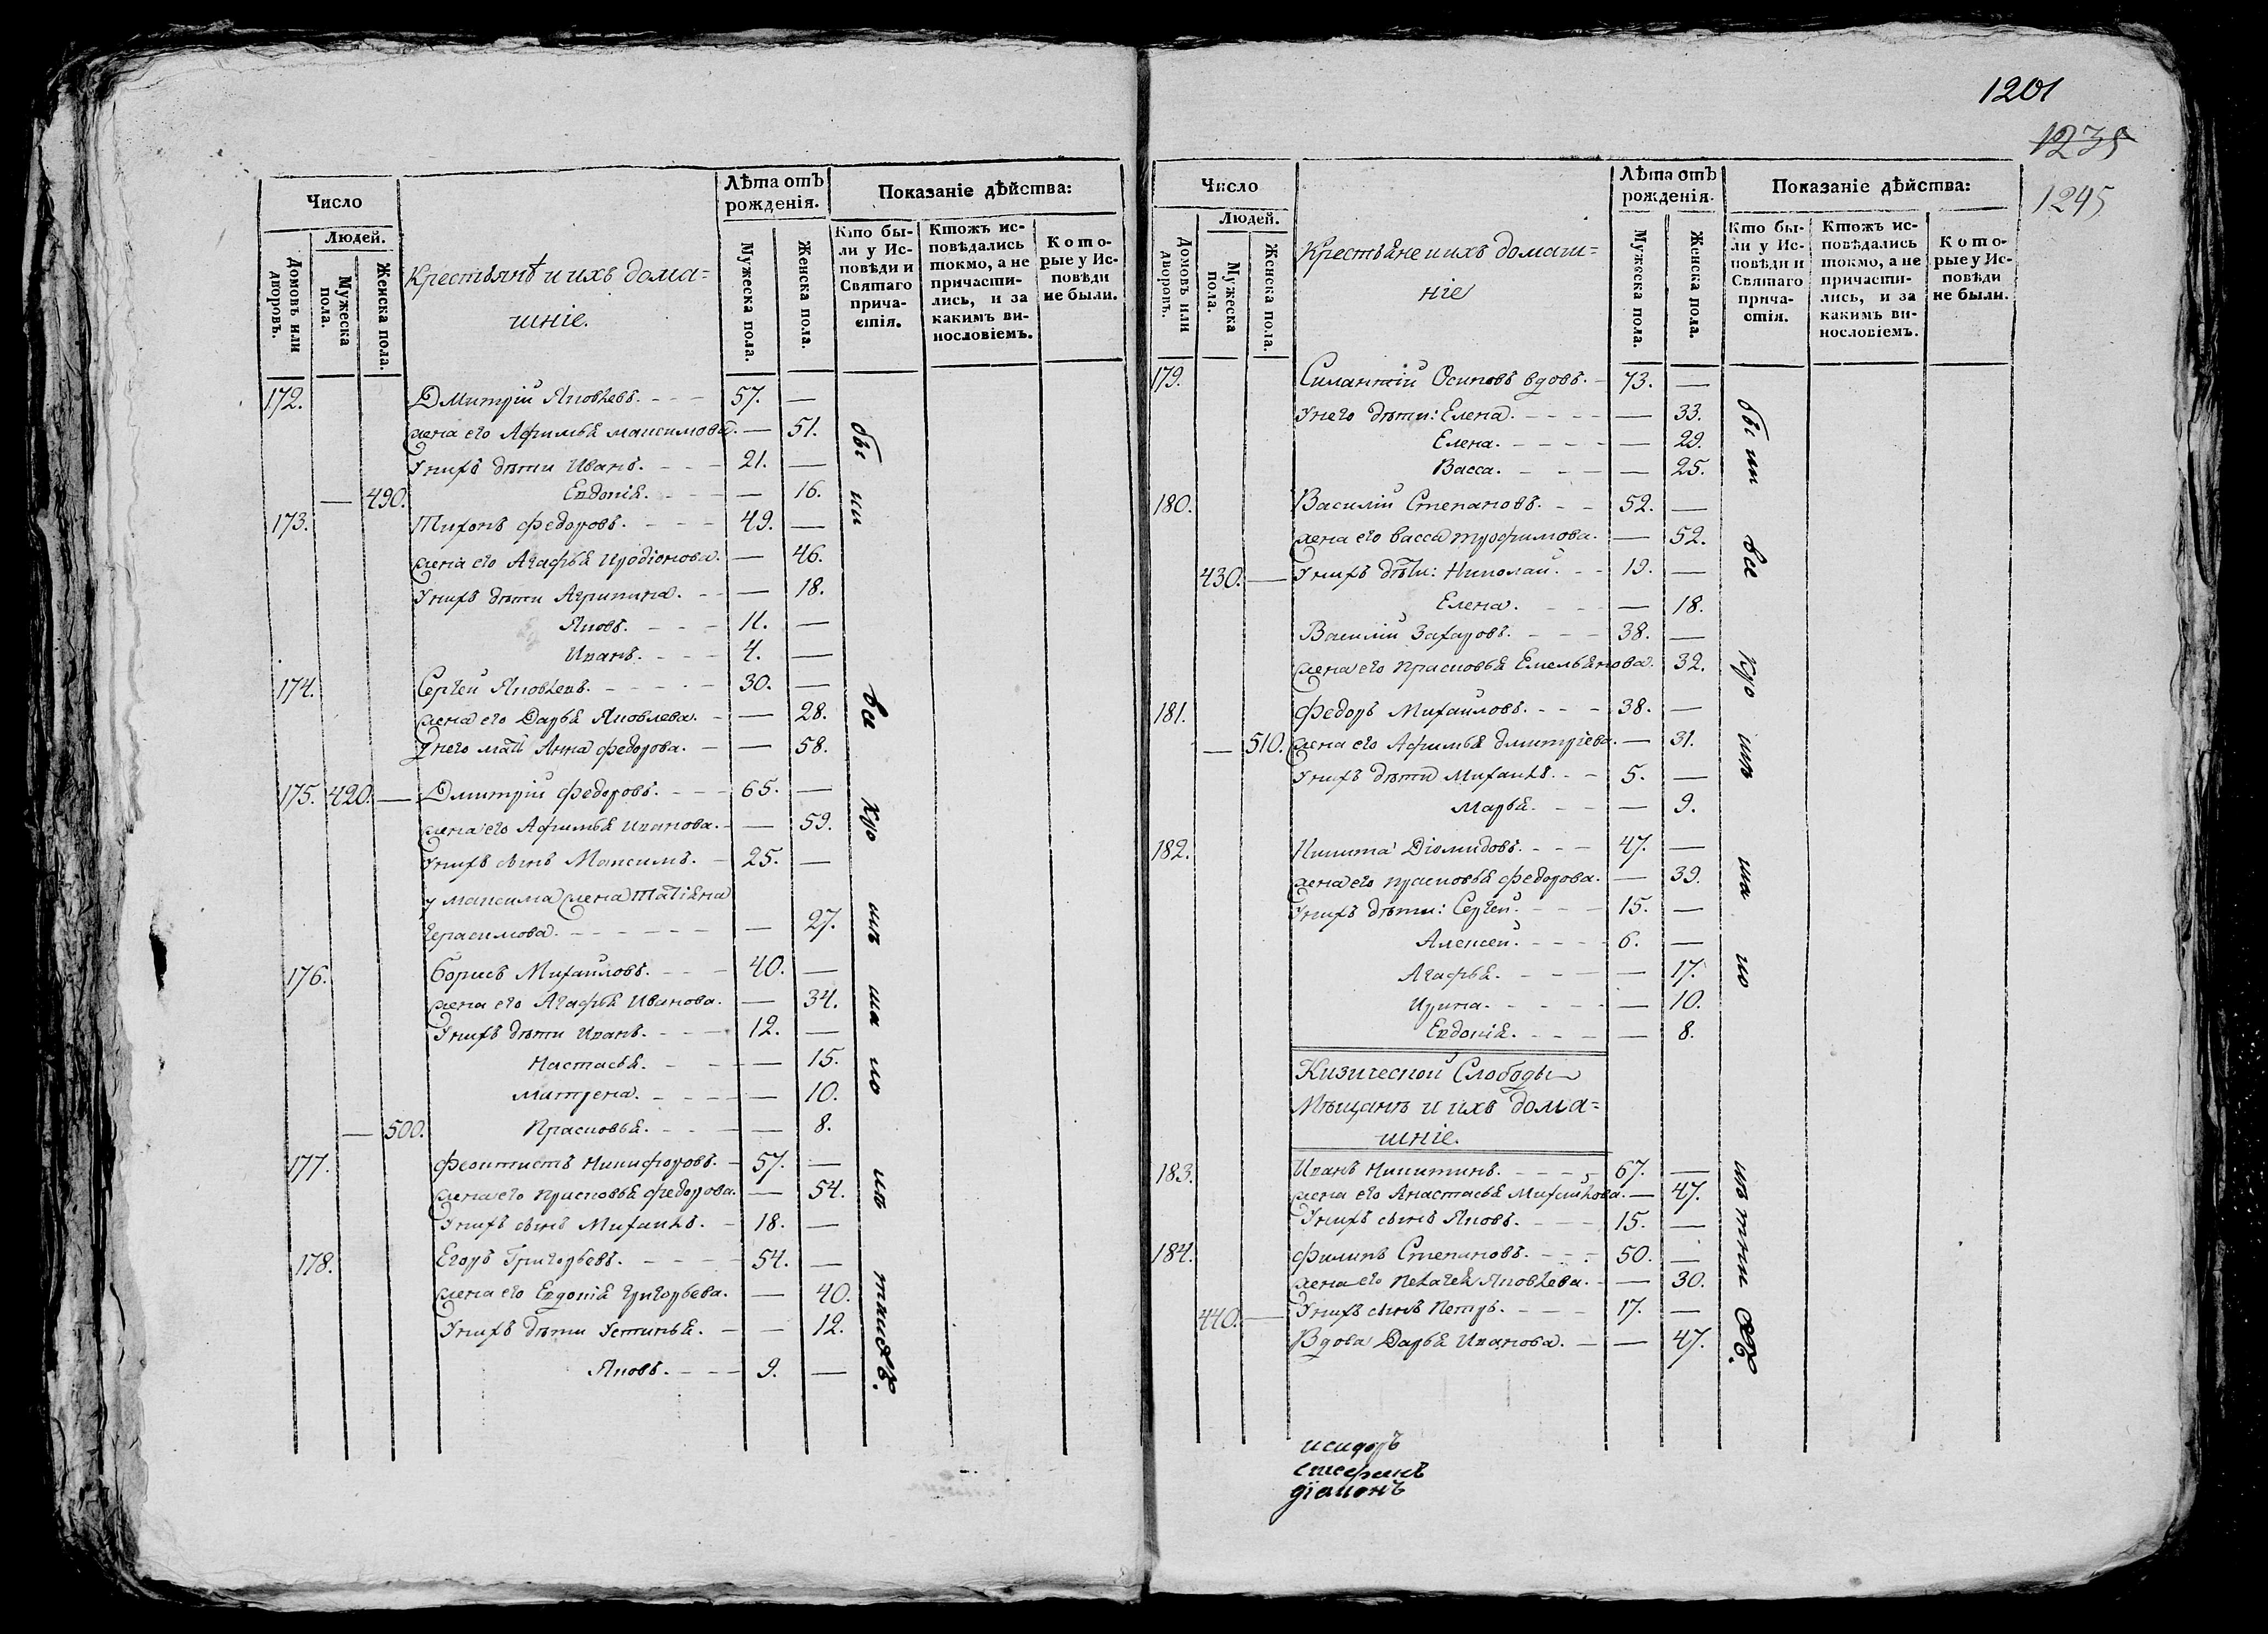 Число
Людей.
Домовъ или дворовъ.
Мужеска пола.
Женска пола.
Крестьянѣ и ихъ дома=
шніе.
Лѣта отъ рожденія.
Мужеска пола.
Женска пола.
Показаніе дѣйства:
Кто бы-
ли у Ис-
повѣди и
Святаго
прича-
стія.
Ктожъ ис-
повѣдались
токмо, а не
причасти-
лись, и за
какимъ ви-
нословіемъ.
Кото-
рые у Ис-
повѣди
не были.
172. Дмитрій Яковлевъ. - - - 57. —
жена его Афимья Максимова. — 51.
У нихъ дѣти Иванъ. - - - 21. —
— 490. Евдокія. - - - — 16.
173. Тихонъ Федоровъ. - - - 49. —
жена его Агафья Иродіонова. — 46.
У нихъ дѣти Агрипина. - - — 18.
Яковъ. - - - 11. —
Иванъ. - - - 4. —
174. Сергей Яковлевъ. - - - - 30. —
жена его Дарья Яковлева. - — 28.
У него мать Анна Федорова. - — 58.
175. 420. — Дмитрій Федоровъ. - - - 65. —
жена его Афимья Иванова. - — 59.
У нихъ сынъ Максимъ. - 25. —
у Максима жена Татіяна
Герасимова. - - - - - - — 27.
176. Борисъ Михайловъ. - - - 40. —
жена его Агафья Иванова. — 34.
У нихъ дѣти Иванъ. - - - 12. —
Настасья. - - - — 15.
Матрена. - - - - — 10.
— 500. Прасковья. - - - — 8.
177. Феоктистъ Никифоровъ. - 57. —
жена его Прасковья Федорова. — 54.
У нихъ сынъ Михаилъ. - 18. —
178. Егоръ Григорьевъ. - - - 54. —
жена его Евдокія Григорьева. — 40.
У нихъ дѣти Устинья. - — 12.
Яковъ. - - - 9. —
бы
ли
все
кро
ша
ко
1201
1235
1245
Число
Людей.
Домовъ или дворовъ.
Мужеска пола.
Женска пола.
Крестьяне и ихъ домаш=
ніе
Лѣта отъ рожденія.
Мужеска пола.
Женска пола.
Показаніе дѣйства:
Кто бы-
ли у Ис-
повѣди и
Святаго
прича-
стія.
Ктожъ ис-
повѣдались
токмо, а не
причасти-
лись, и за
какимъ ви-
нословіемъ.
Кото-
рые у Ис-
повѣди
не были.
179. Силантій Осиповъ вдовъ. - 73. —
У него дѣти: Елена. - - - - — 33.
Елена. - - - - — 29.
Васса. - - - — 25.
180. Василій Степановъ. - - 52. —
жена его Васса Трофимова. — 52.
430. — У нихъ дѣти: Николай. - - 19. —
Елена. - - - — 18.
Василій Захаровъ. - - - 38. —
жена его Прасковья Емельянова. 32.
181. Федоръ Михайловъ. - - - 38. —
— 510. жена его Афимья Дмитріева. — 31.
У нихъ дѣти Михаилъ. - - 5. —
Марья. - - - — 9.
182. Никита Діомидовъ. - - - 47. —
жена его Прасковья Федорова. — 39.
У нихъ дѣти: Сергей. - - - 15. —
Алексей. - - - - 6. —
Агафья. - - - - — 17.
Ирина. - - - - - — 10.
Евдокія. - - - - — 8.
Кизической Слободы
Мѣщанѣ и ихъ дома=
шніе.
183. Иванъ Никитинъ. - - - - 67. —
жена его Анастасья Михайлова. — 47.
У нихъ сынъ Яковъ. - - - 15. —
184. Филипъ Степановъ. - - - 50. —
жена его Пелагея Яковлева. - — 30.
440. — У нихъ сынъ Петръ. - - - 17. —
Вдова Дарья Иванова. - — 47.
бы
ли
все
кро
ша
ко
исидоръ
стефанъ
діаконъ